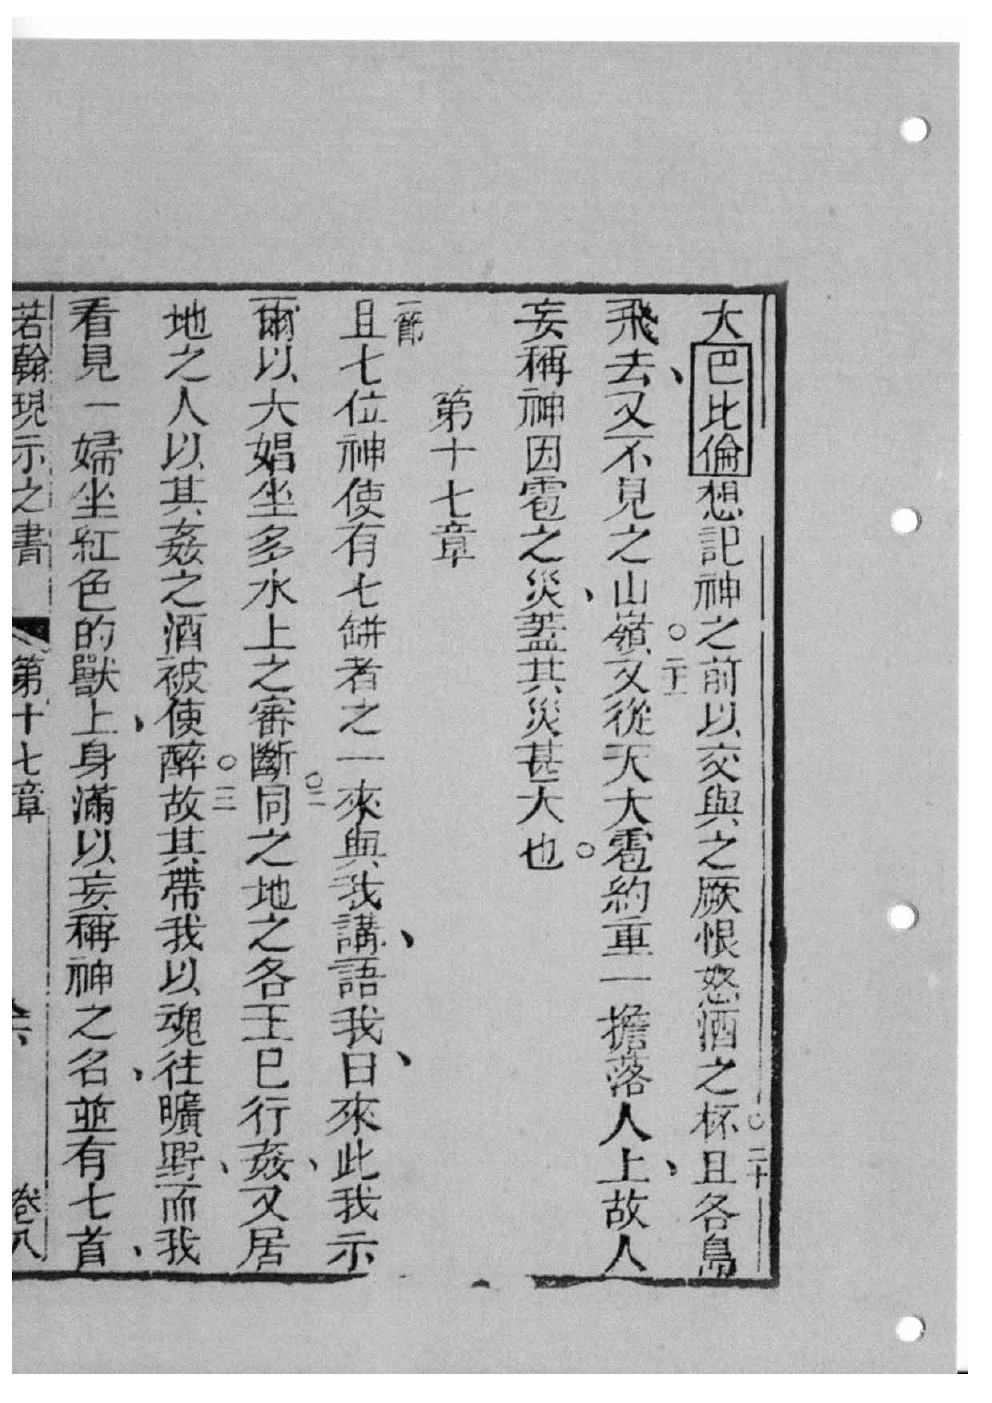 大巴比倫想記神之前以交與之厥恨怒酒之杯○二十且各鳥
飛去、又不見之山嶺○二十一又從天大雹約重一擔落人上、故人
妄稱神因雹之災、蓋其災甚大也○
第十七章
一節且七位神使有七缾者之一來與我講、語我曰、來此我示
爾以大娼坐多水上之審斷○二同之地之各王已行姦、又居
地之人以其姦之酒被使醉○三故其帶我以魂往曠野、而我
看見一婦坐紅色的獸上、身滿以妄稱神之名、並有七首、
若翰現示之書 第十七章 卷八